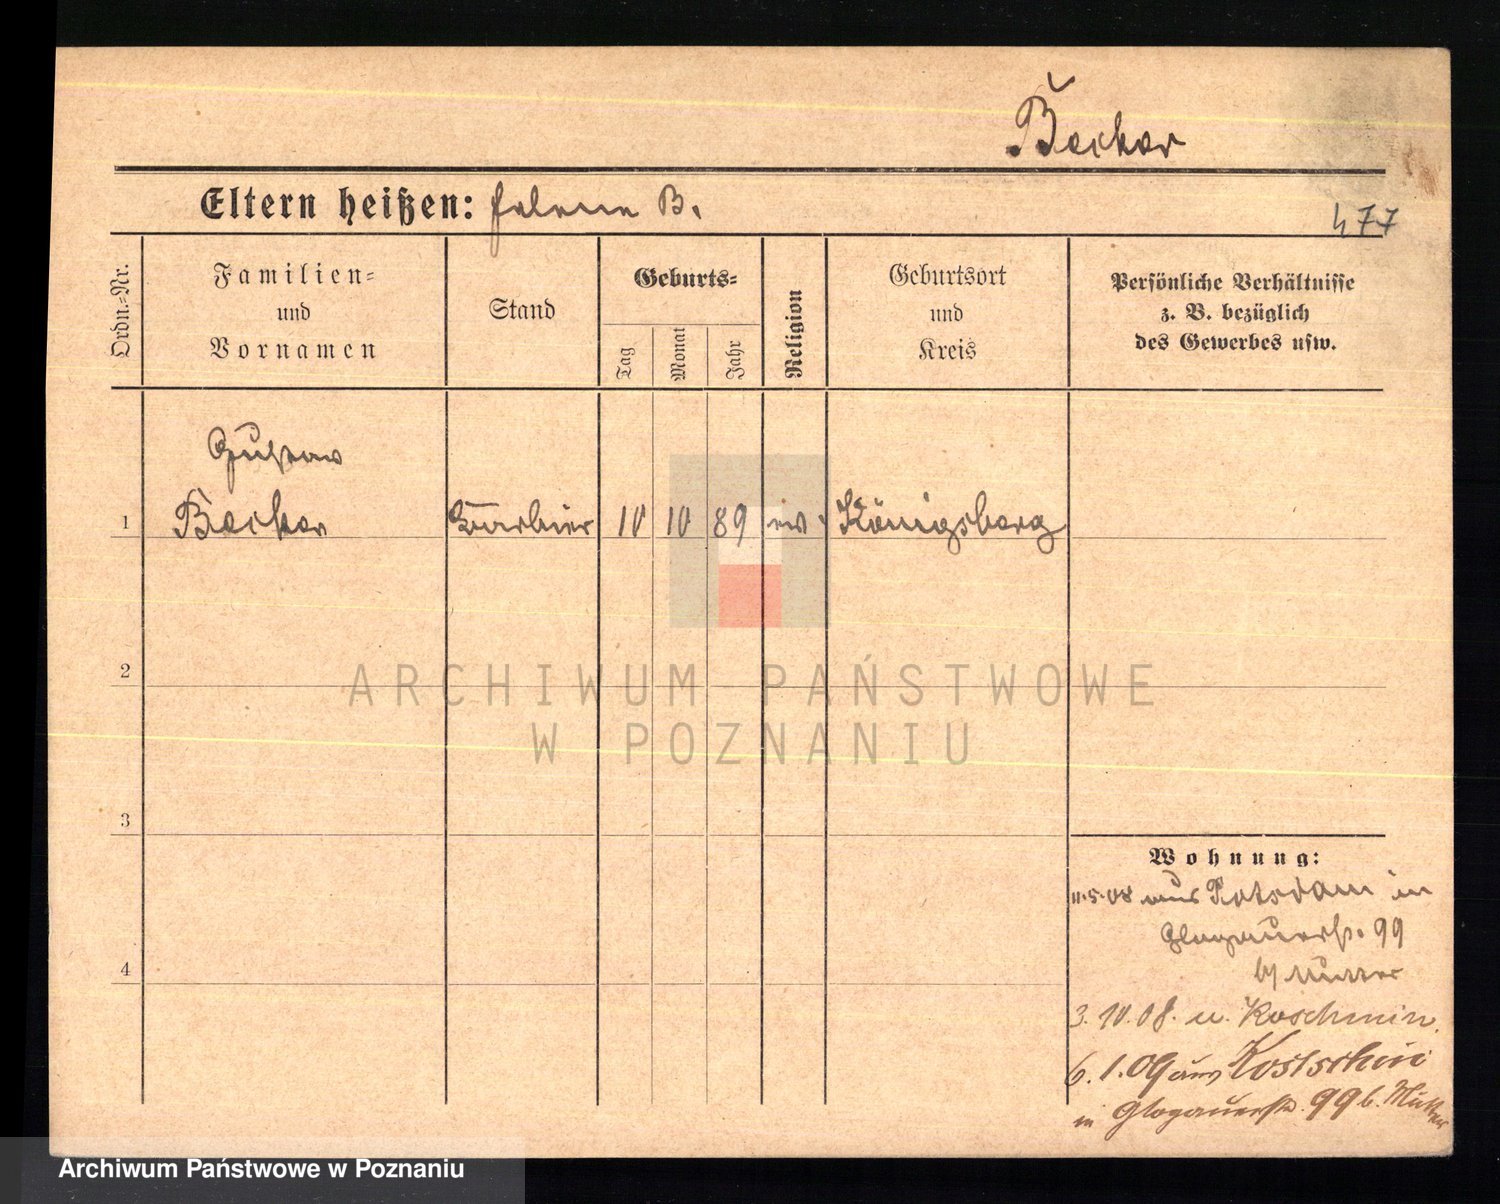 Becker
Eltern heißen: Helene B.
477
Ordn.-Nr.
Familien-
und
Vornamen
Stand
Geburts-
Tag
Monat
Jahr
Religion
Geburtsort
und
Kreis
Persönliche Verhältnisse
z. B. bezüglich
des Gewerbes usw.
Gustav
1 Becker Barbier 10 10 89 ev Königsberg
2
ARCHIWUM PAŃSTWOWE
W POZNANIU
3
Wohnung:
11.5.08 aus Potsdam in
Glogauerstr. 99
b/ Mutter
3.10.08. n. Koschmin.
6.1.09 aus Kostschin
in Glogauerstr. 99 b. Mutter
4
Archiwum Państwowe w Poznaniu